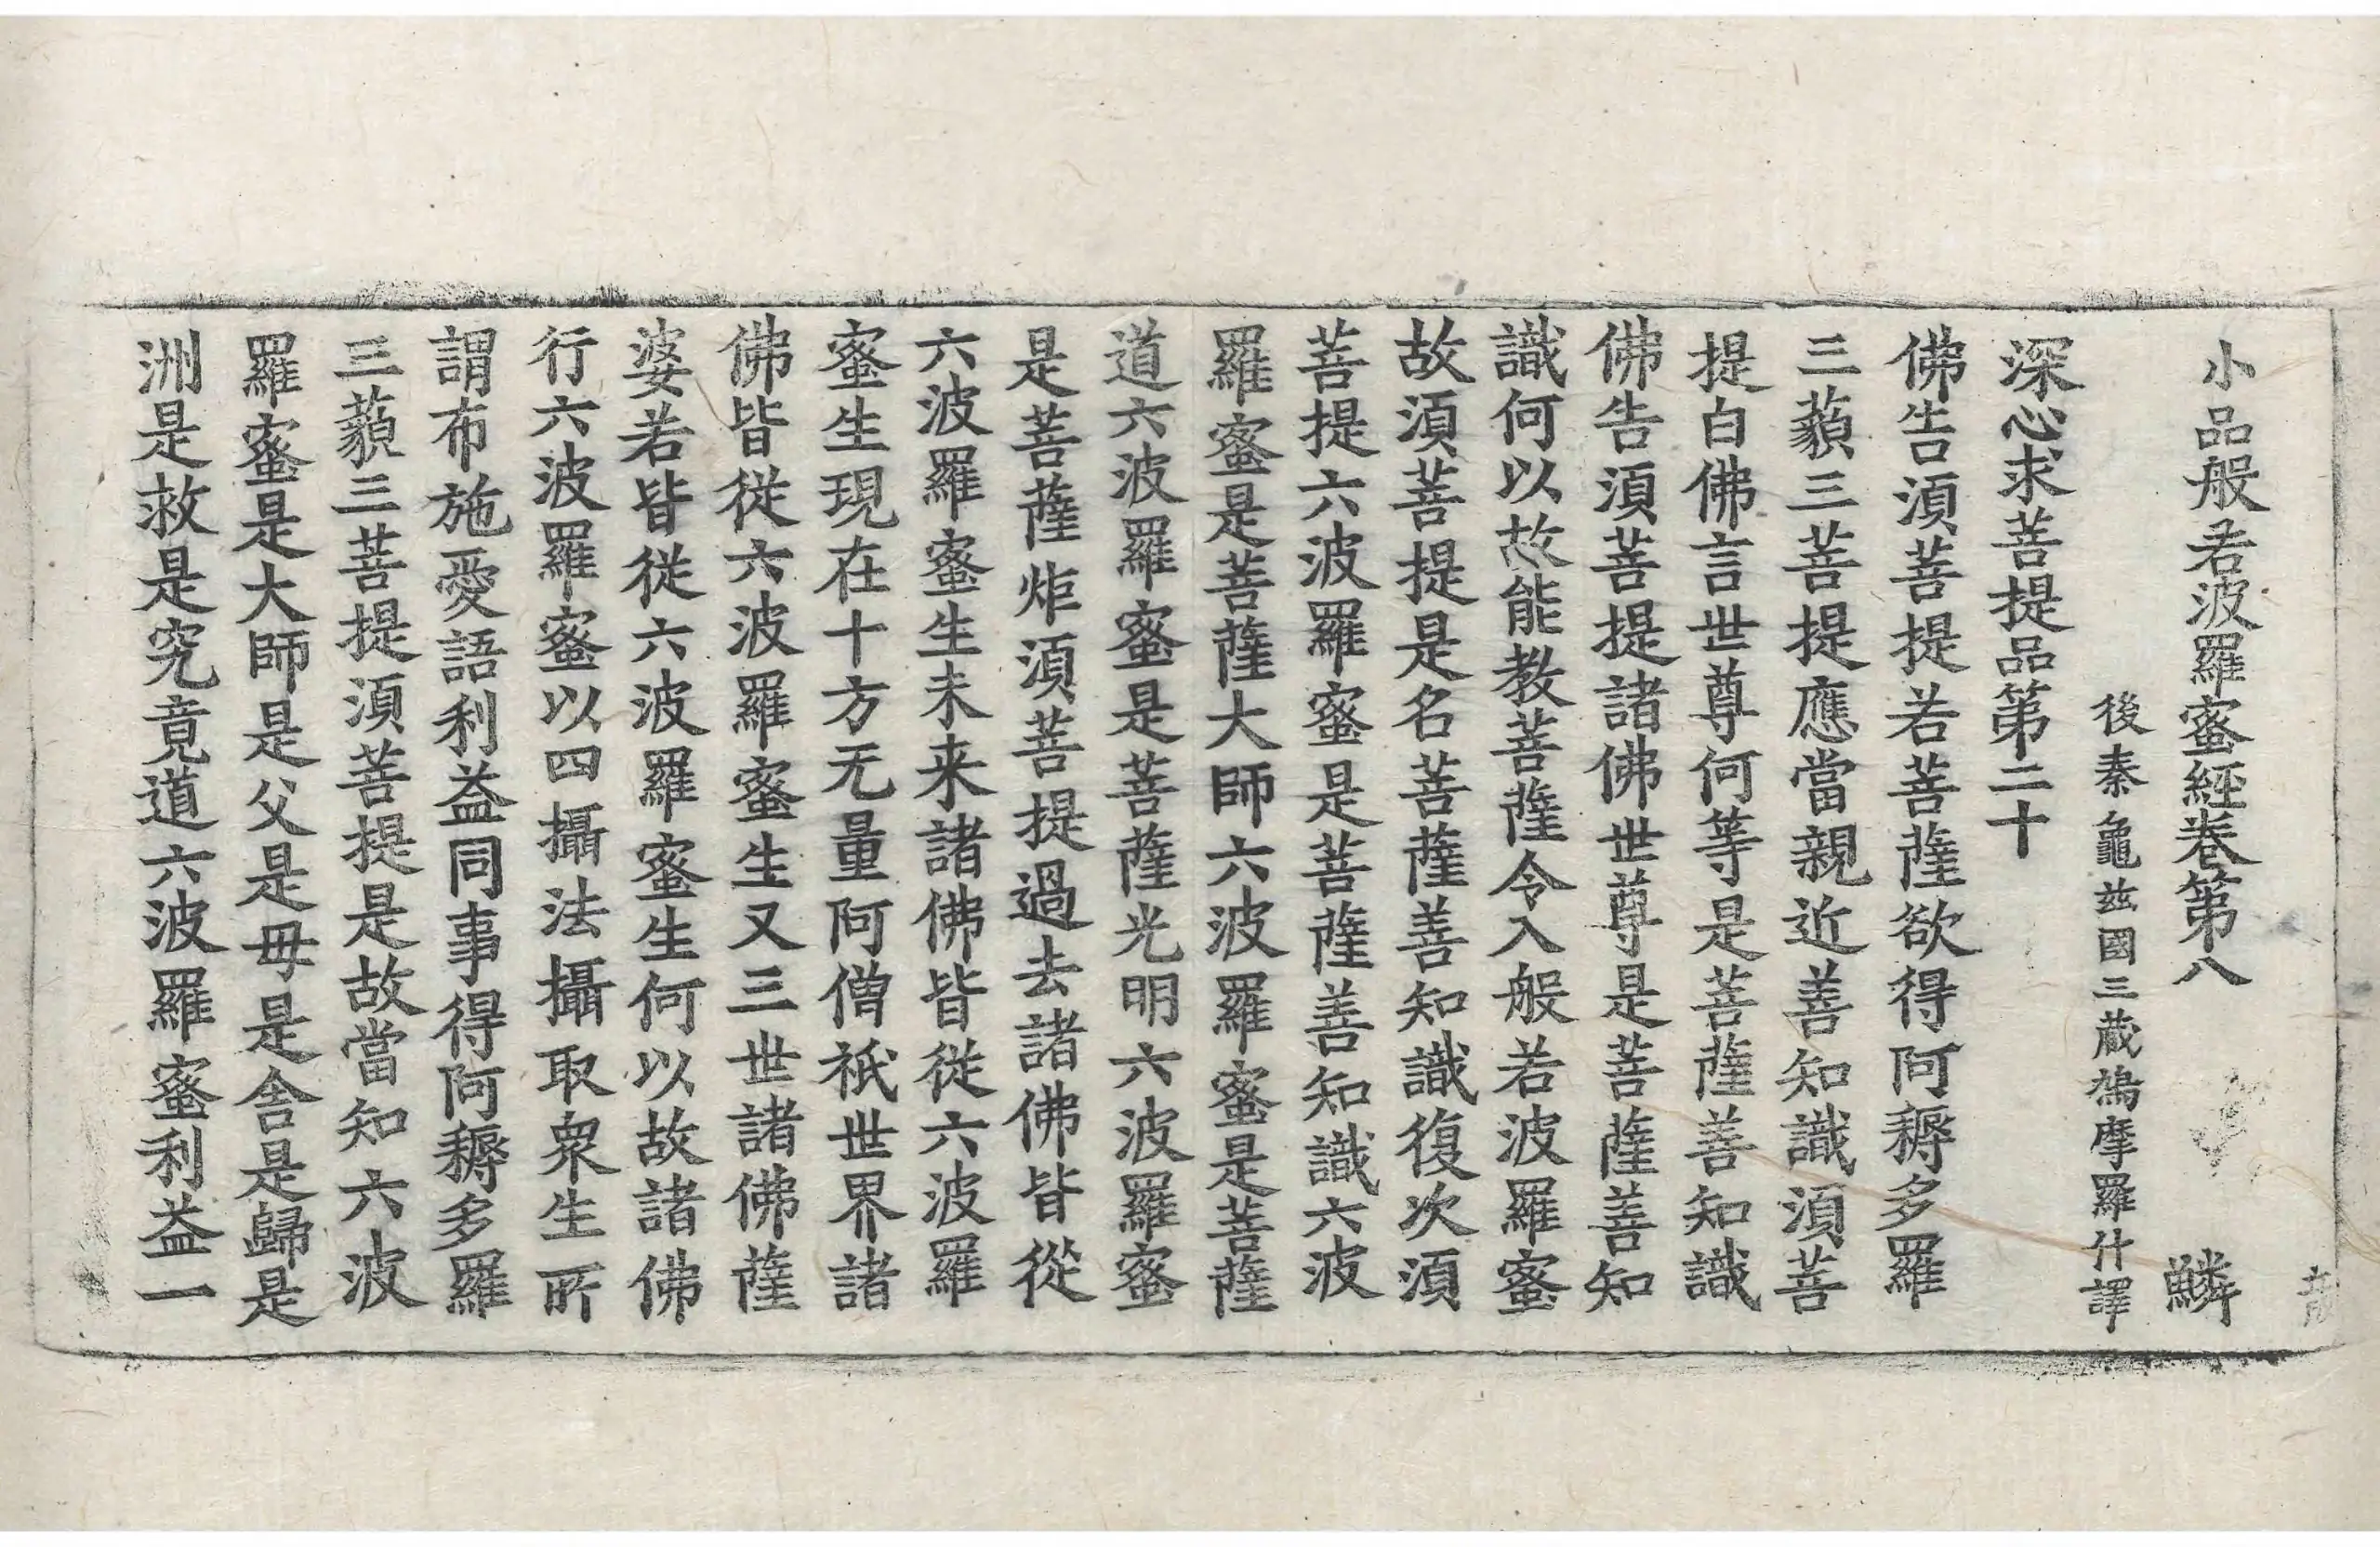 小品般若波羅蜜經卷第八 鱗
後秦龜茲國三藏鳩摩羅什譯
深心求菩提品第二十
佛告湏菩提若菩薩欲得阿耨多羅
三藐三菩提應當親近善知識湏菩
提白佛言世尊何等是菩薩善知識
佛告湏菩提諸佛世尊是菩薩善知
識何以故能教菩薩令入般若波羅蜜
故湏菩提是名菩薩善知識復次湏
菩提六波羅蜜是菩薩善知識六波
羅蜜是菩薩大師六波羅蜜是菩薩
道六波羅蜜是菩薩光明六波羅蜜
是菩薩炬湏菩提過去諸佛皆從
六波羅蜜生未来諸佛皆從六波羅
蜜生現在十方无量阿僧祇世界諸
佛皆從六波羅蜜生又三世諸佛薩
婆若皆從六波羅蜜生何以故諸佛
行六波羅蜜以四攝法攝取衆生所
謂布施愛語利益同事得阿耨多羅
三藐三菩提湏菩提是故當知六波
羅蜜是大師是父是母是舎是歸是
洲是救是究竟道六波羅蜜利益一